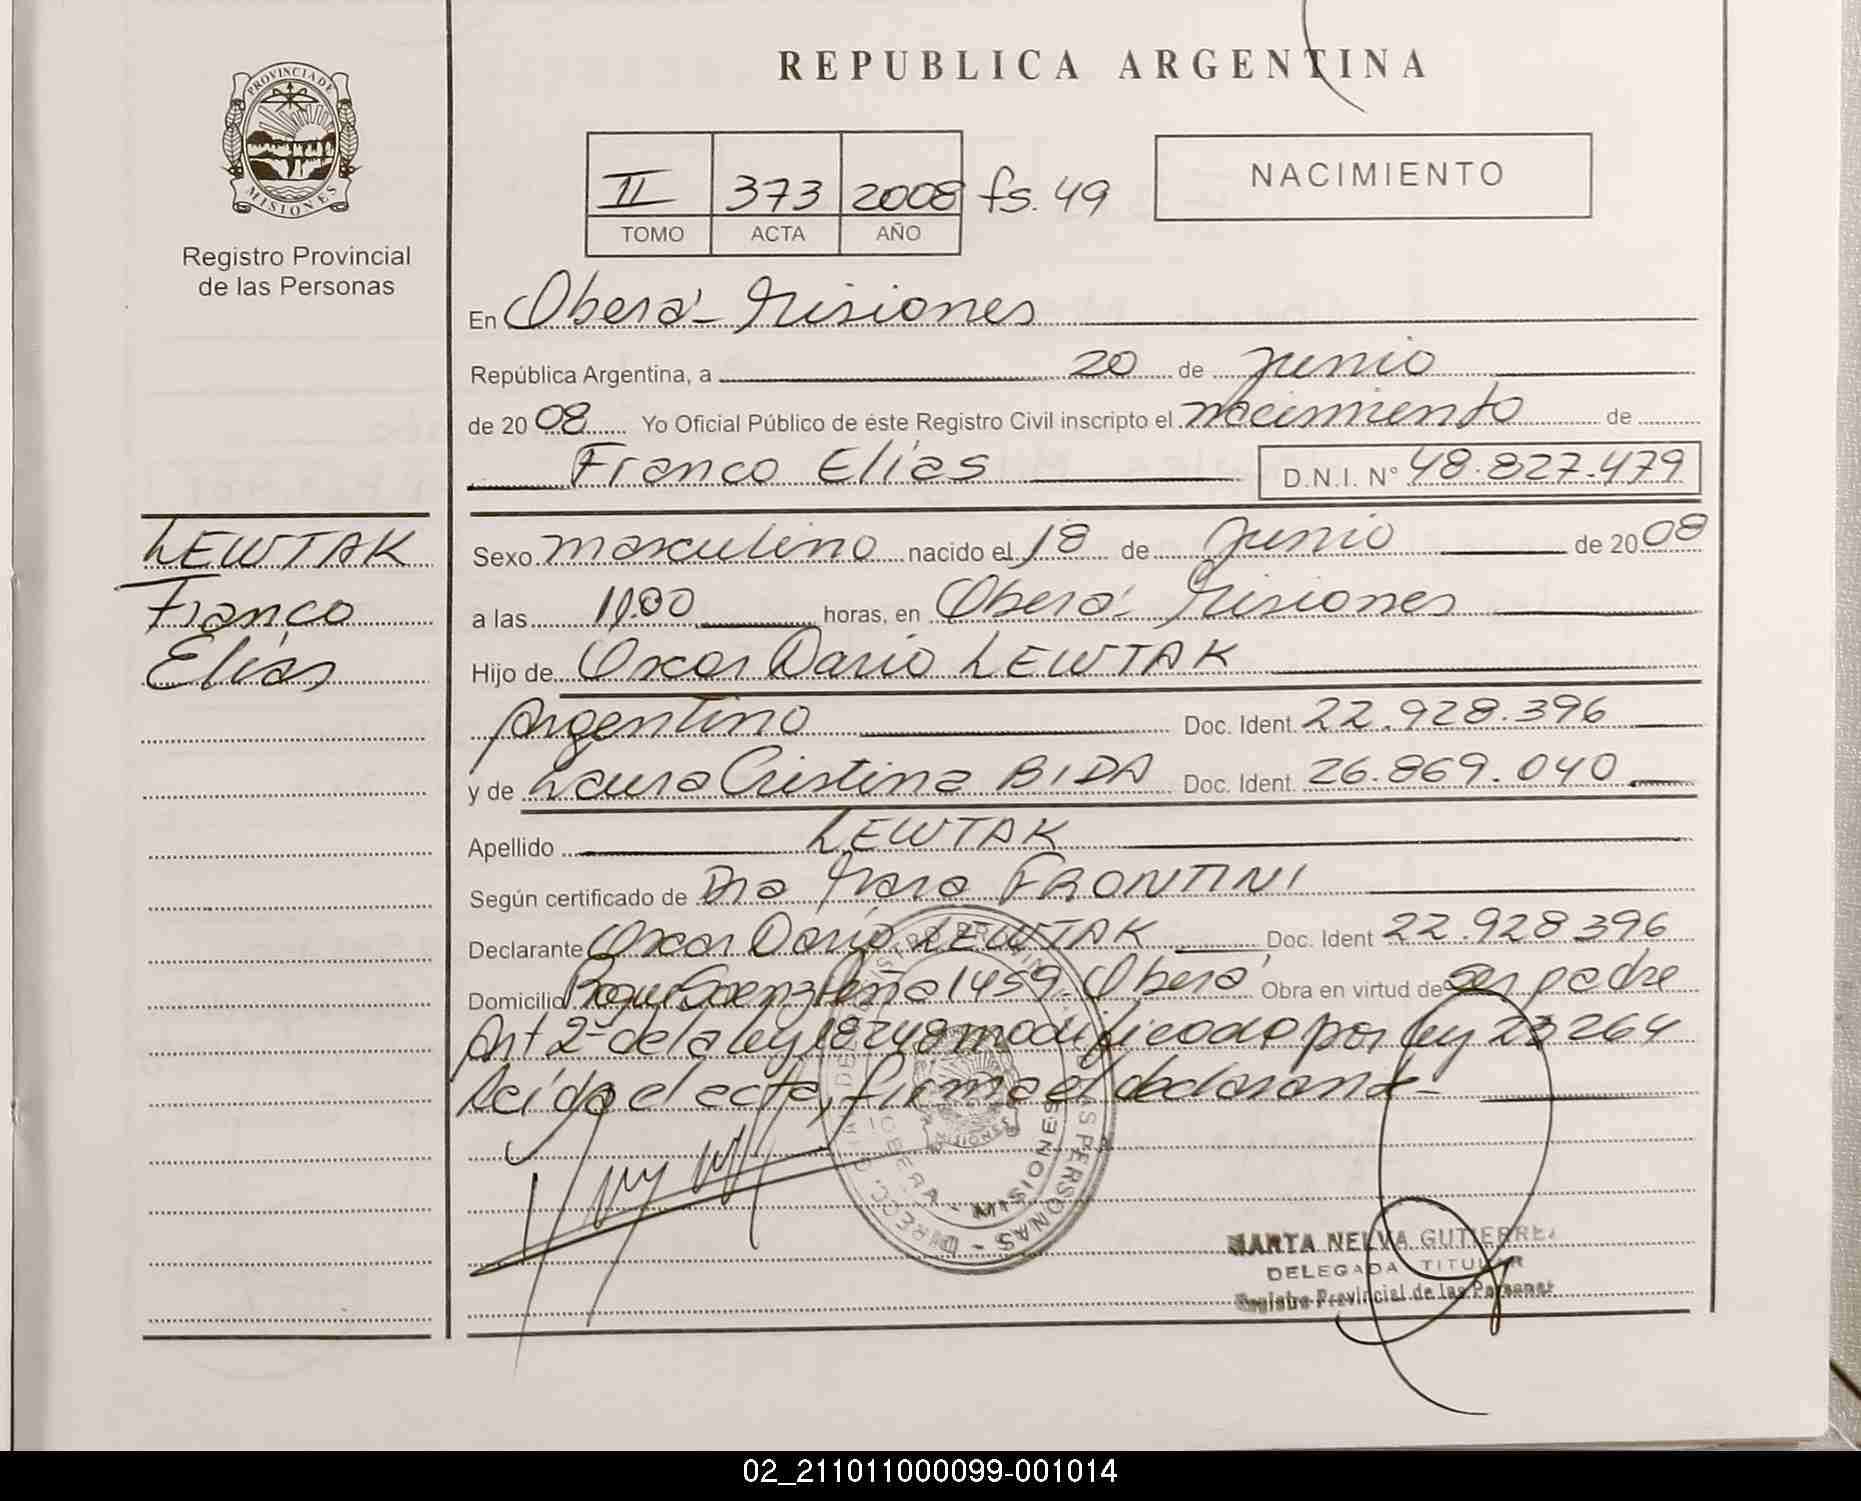 REPUBLICA ARGENTINA
PROVINCIA DE
MISIONES
Registro Provincial
de las Personas
II 373 2008 fs. 49
TOMO ACTA AÑO
NACIMIENTO
En Oberá - Misiones
República Argentina, a 20 de Junio
de 2008 Yo Oficial Público de éste Registro Civil inscripto el nacimiento de
Franco Elías D.N.I. N° 48.827.479
LEWTAK
Franco
Elías
Sexo masculino nacido el 18 de Junio de 2008
a las 11.00 horas, en Oberá - Misiones
Hijo de Oscar Dario LEWTAK
Argentino Doc. Ident. 22.928.396
y de Laura Cristina BIDA Doc. Ident. 26.869.040
Apellido LEWTAK
Según certificado de Dra Mara FRONTINI
Declarante Oscar Dario LEWTAK Doc. Ident 22.928.396
Domicilio Roque Saenz Peña 1459. Oberá Obra en virtud de ser padre
Art 2º de la ley 18248 modificado por ley 23264
Leída el acta, firma el declarante
MISIONES
OBERA - MISIONES
PERSONAS - DIRECC. GRAL
MARTA NELVA GUTIERREZ
DELEGADA TITULAR
Registro Provincial de las Personas
02_211011000099-001014